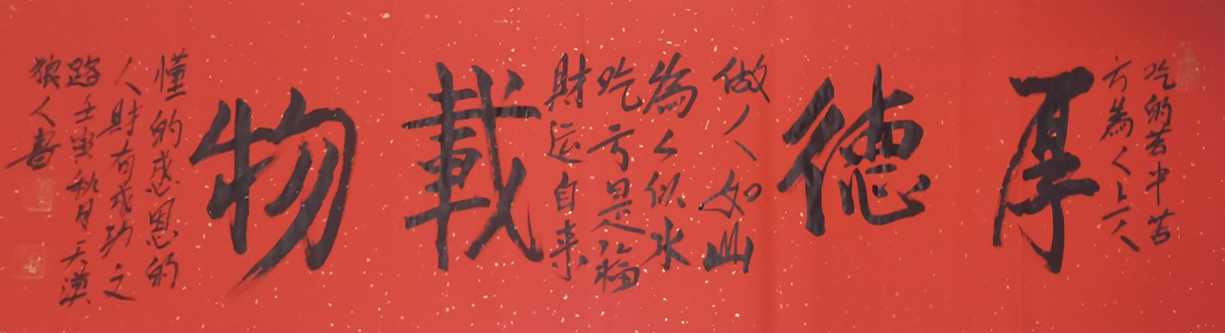 吃的苦中苦
方為人上人
厚
德
做人如山
為人似水
吃亏是福
財运自来
載
物
懂的感恩的
人財有成功之
路壬寅秋月天漢
狼人書